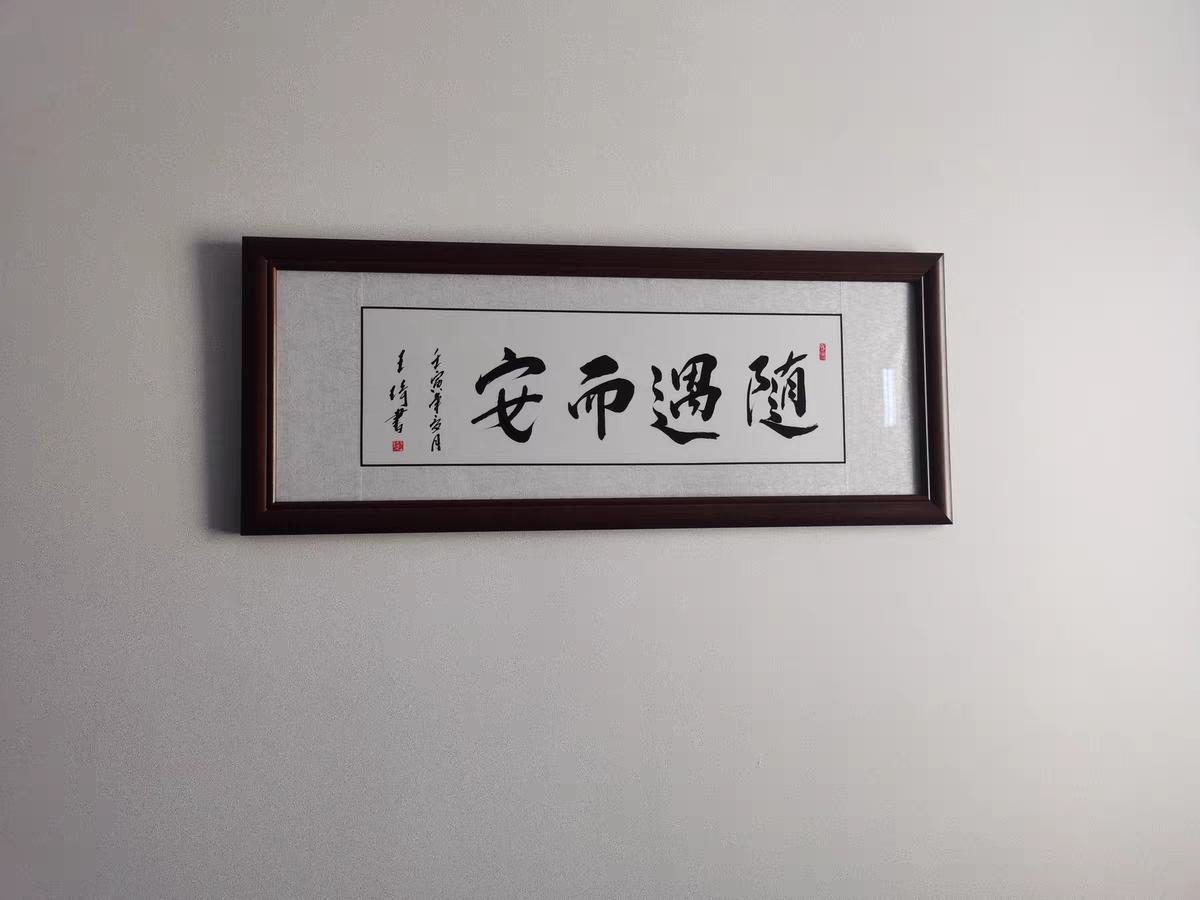 随遇而安
壬寅年亥月
王琦書